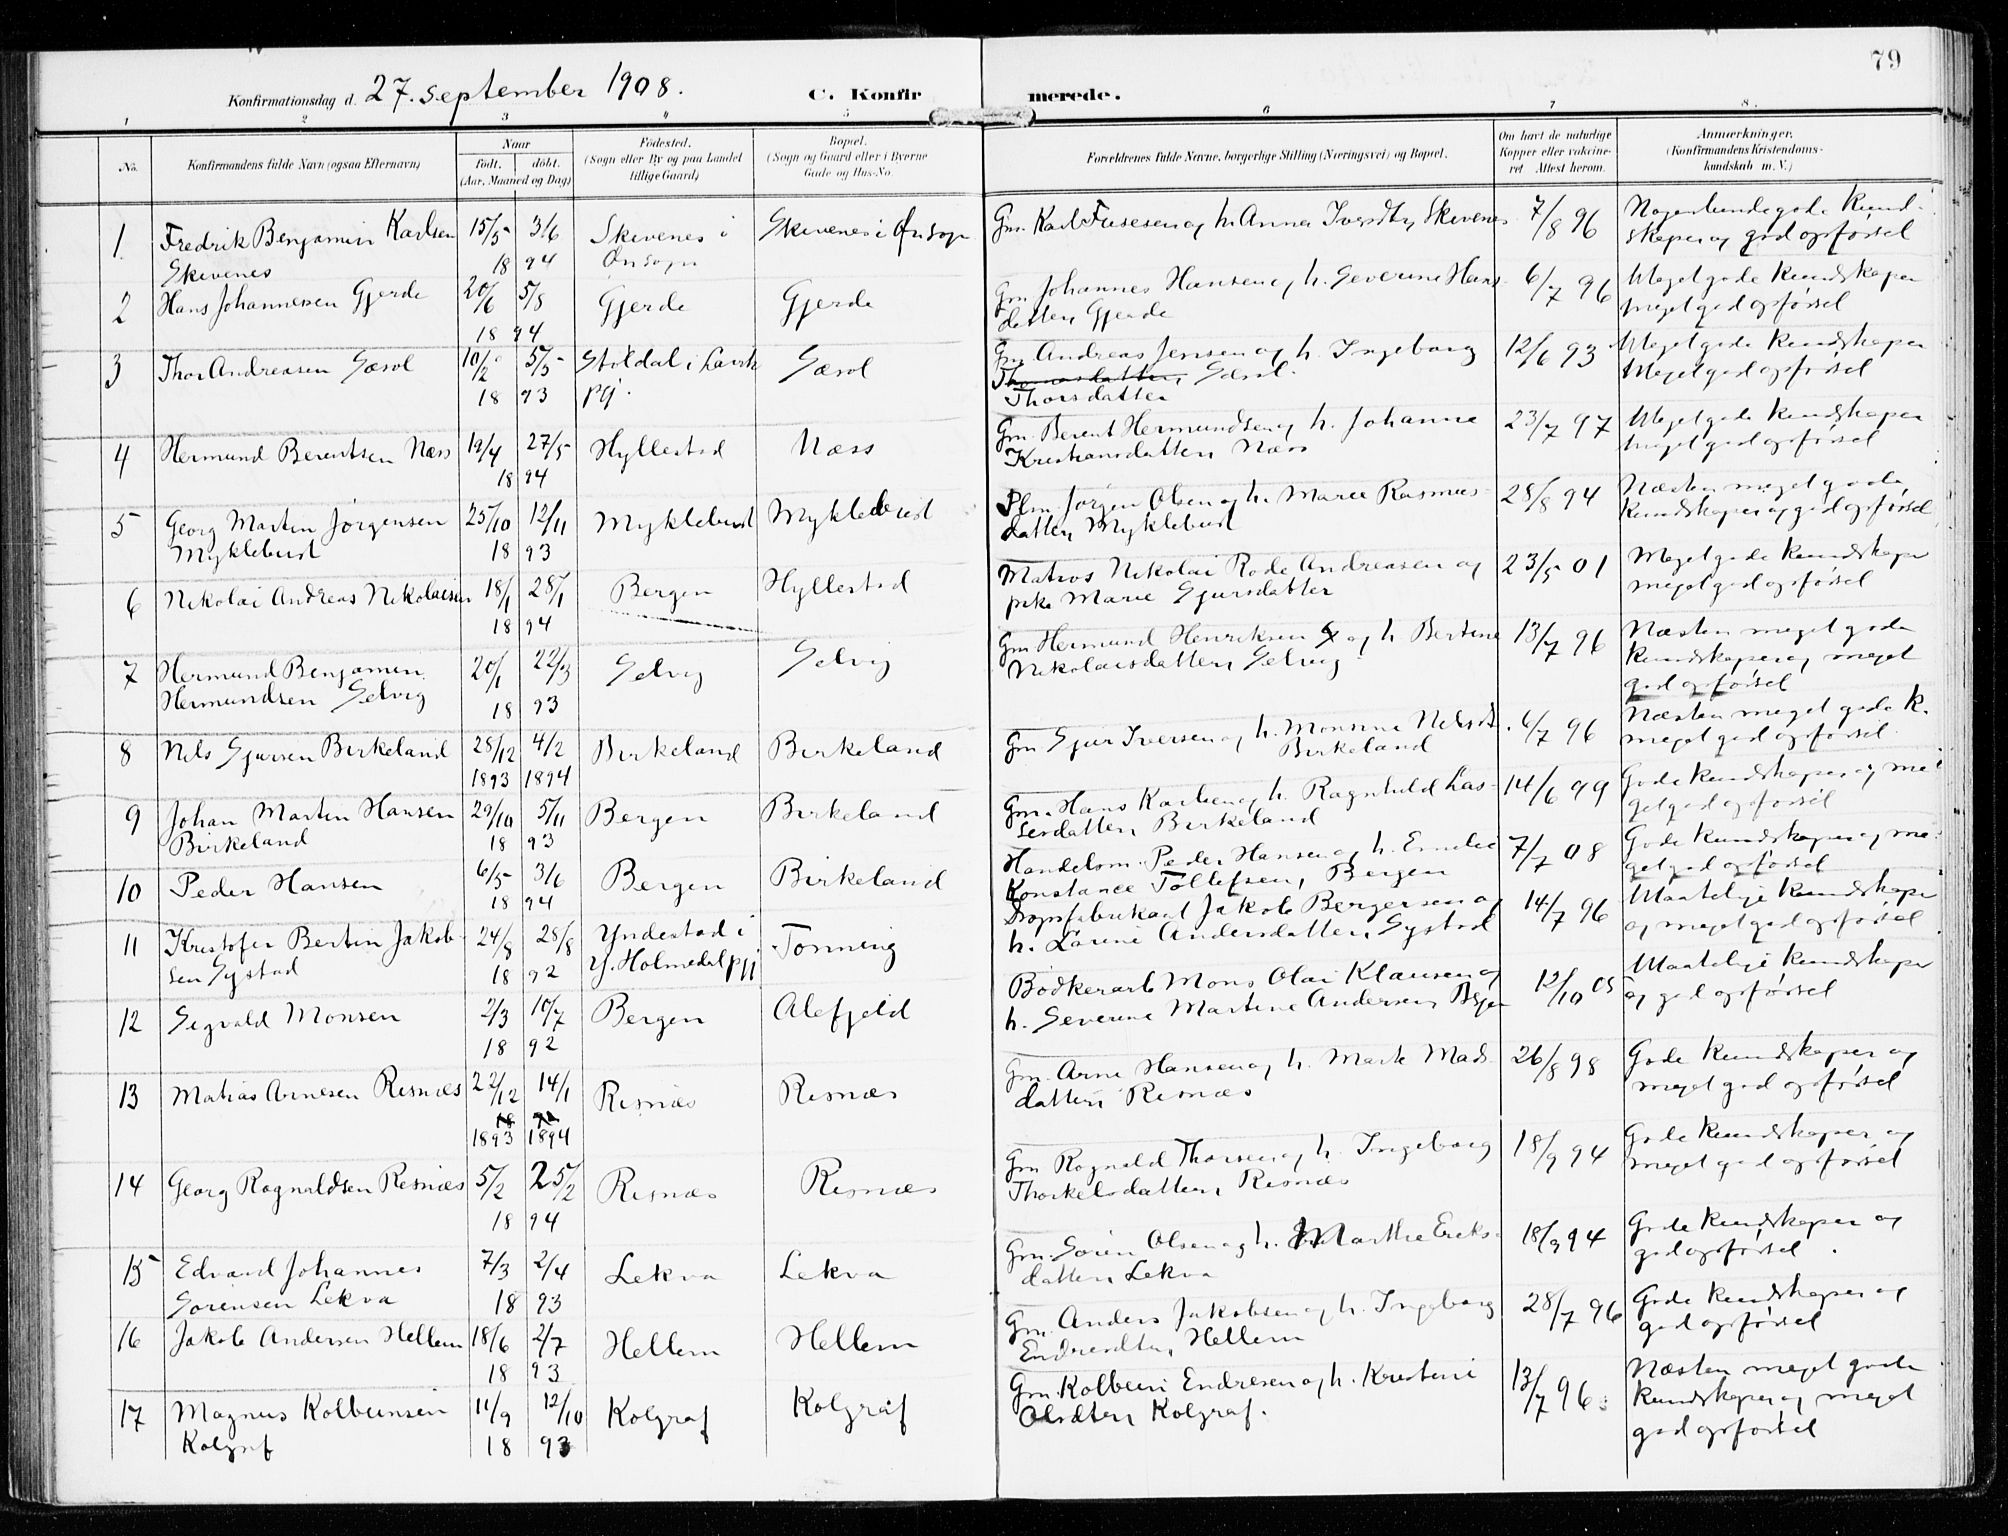 79
Konfirmationsdag d. 27. september 1908. C. Konfirmerede.
1 2 3 4 5 6 7 8.
No. Konfirmandens fulde Navn (ogsaa Efternavn) Naar født. døbt. (Aar, Maaned og Dag) Fødested. (Sogn eller By og paa Landet tillige Gaard) Bopæl. (Sogn og Gaard eller i Byerne Gade og Hus-No. Forældrenes fulde Navne, borgerlige Stilling (Næringsvei) og Bopæl. Om havt de naturlige Kopper eller vaccineret Attest herom. Anmærkninger. (Konfirmandens Kristendomskundskab m. V.)
1 Fredrik Benjamin Karlsen 15/5 3/6 Skivenes i Skivenes i Gm. Karl og h. Anna Skivenes 7/8 96 Nogenlunde gode Kund-
Skivenes 18 94 skaper og god opførsel
2 Hans Johannesen Gjerde 20/6 5/8 Gjerde Gjerde Gm. Johannes Hansen og h. Severine Hans- 6/7 96 Meget gode Kundskaper
18 94 datter, Gjerde meget god opførsel
3 Thor Andreasen Sæsol 10/2 5/5 Stöldal i Lavik Sæsol Gm. Andreas Jensen og h. Ingeborg 12/6 93 Meget gode Kundskaper
18 93 pgj. Thomasdatter, Sæsol. Meget god opførsel
Thorsdatter
4 Hermund Berentsen Næss 19/4 27/5 Hyllestad Næss Gm. Berent Hermundsen og h. Johanne 23/7 97 Meget gode Kundskaper
18 94 Kristiansdatter, Næss meget god opførsel
5 Georg Martin Jørgensen 25/10 12/11 Myklebust Myklebust Plm. Jørgen Olsen og h. Marie Rasmus- 28/8 94 Næsten meget gode
Myklebust 18 93 datter, Myklebust Kundskaper og god opførsel
6 Nikolai Andreas Nikolaisen 18/1 28/1 Bergen Hyllestad Matros Nikolai Rode Andreasen og 23/5 01 Meget gode Kundskaper
18 94 pike Marie Sjursdatter meget god opførsel
7 Hermund Benjamin 20/1 22/3 Selvig Selvig Gm Hermund Henriksen og h Bertine 13/7 96 Næsten meget gode
Hermundsen Selvig 18 93 Nikolaisdatter, Selvig Kundskaper og meget
god opførsel
8 Nils Sjursen Birkeland 28/12 4/2 Birkeland Birkeland Gm Sjur Iversen og h. Monsine Nelsdt. 6/7 96 Næsten meget gode K.
1893 1894 Birkeland meget god opførsel.
9 Johan Martin Hansen 29/10 5/11 Bergen Birkeland Gm. Hans Karlsen og h. Ragnhild Las- 14/6 99 Gode Kundskaper og me-
Birkeland 18 93 sesdatter, Birkeland get god opførsel
10 Peder Hansen 6/5 3/6 Bergen Birkeland Handelsm. Peder Hansen og h. Emelie 7/7 08 Gode Kundskaper og me-
18 94 Konstance Tollefsen, Bergen get god opførsel
11 Kristofer Bertin Jakob- 24/8 28/8 Yndestad i Tonning Jakob Bergersen og 14/7 96 Maatelige Kundskaper
sen Systad 18 92 Y. Holmedal pgj h. Larine Andersdatter, Systad og meget god opførsel
12 Sigvald Monsen 2/3 10/7 Bergen Alefjeld Bødkerarb Mons Olai Klausen og 12/10 05 Maatelige Kundskaper
18 92 h. Severine Martine Andersen, Bergen og god opførsel
13 Matias Arnesen Risnæs 22/12 14/1 Risnæs Risnæs Gm. Arne Hansen og h. Marte Mads- 26/8 98 Gode Kundskaper og
1893 1894 datter, Risnæs meget god opførsel
14 Georg Ragnvaldsen Risnæs 5/2 25/2 Risnæs Risnæs Gm Ragnvald Thorsen og h. Ingeborg 18/9 94 Gode Kundskaper og
18 94 Thorkelsdatter, Risnæs meget god opførsel
15 Edvard Johannes 7/3 2/4 Lekva Lekva Gm. Søren Olsen og h. Marthe Eriks- 18/9 94 Gode Kundskaper og
Sørensen Lekva 18 93 datter, Lekva god opførsel.
16 Jakob Andersen Hellem 18/6 2/7 Hellem Hellem Gm. Anders Jakobsen og h. Ingeborg 28/7 96 Gode Kundskaper og
18 93 Endresdtr, Hellem god opførsel
17 Magnus Kolbeinsen 11/9 12/10 Kolgraf Kolgraf Gm. Kolbein Endresen og h. Kristine 13/7 96 Næsten meget gode
Kolgraf 18 93 Olsdter, Kolgraf. Kundskaper og meget
god opførsel